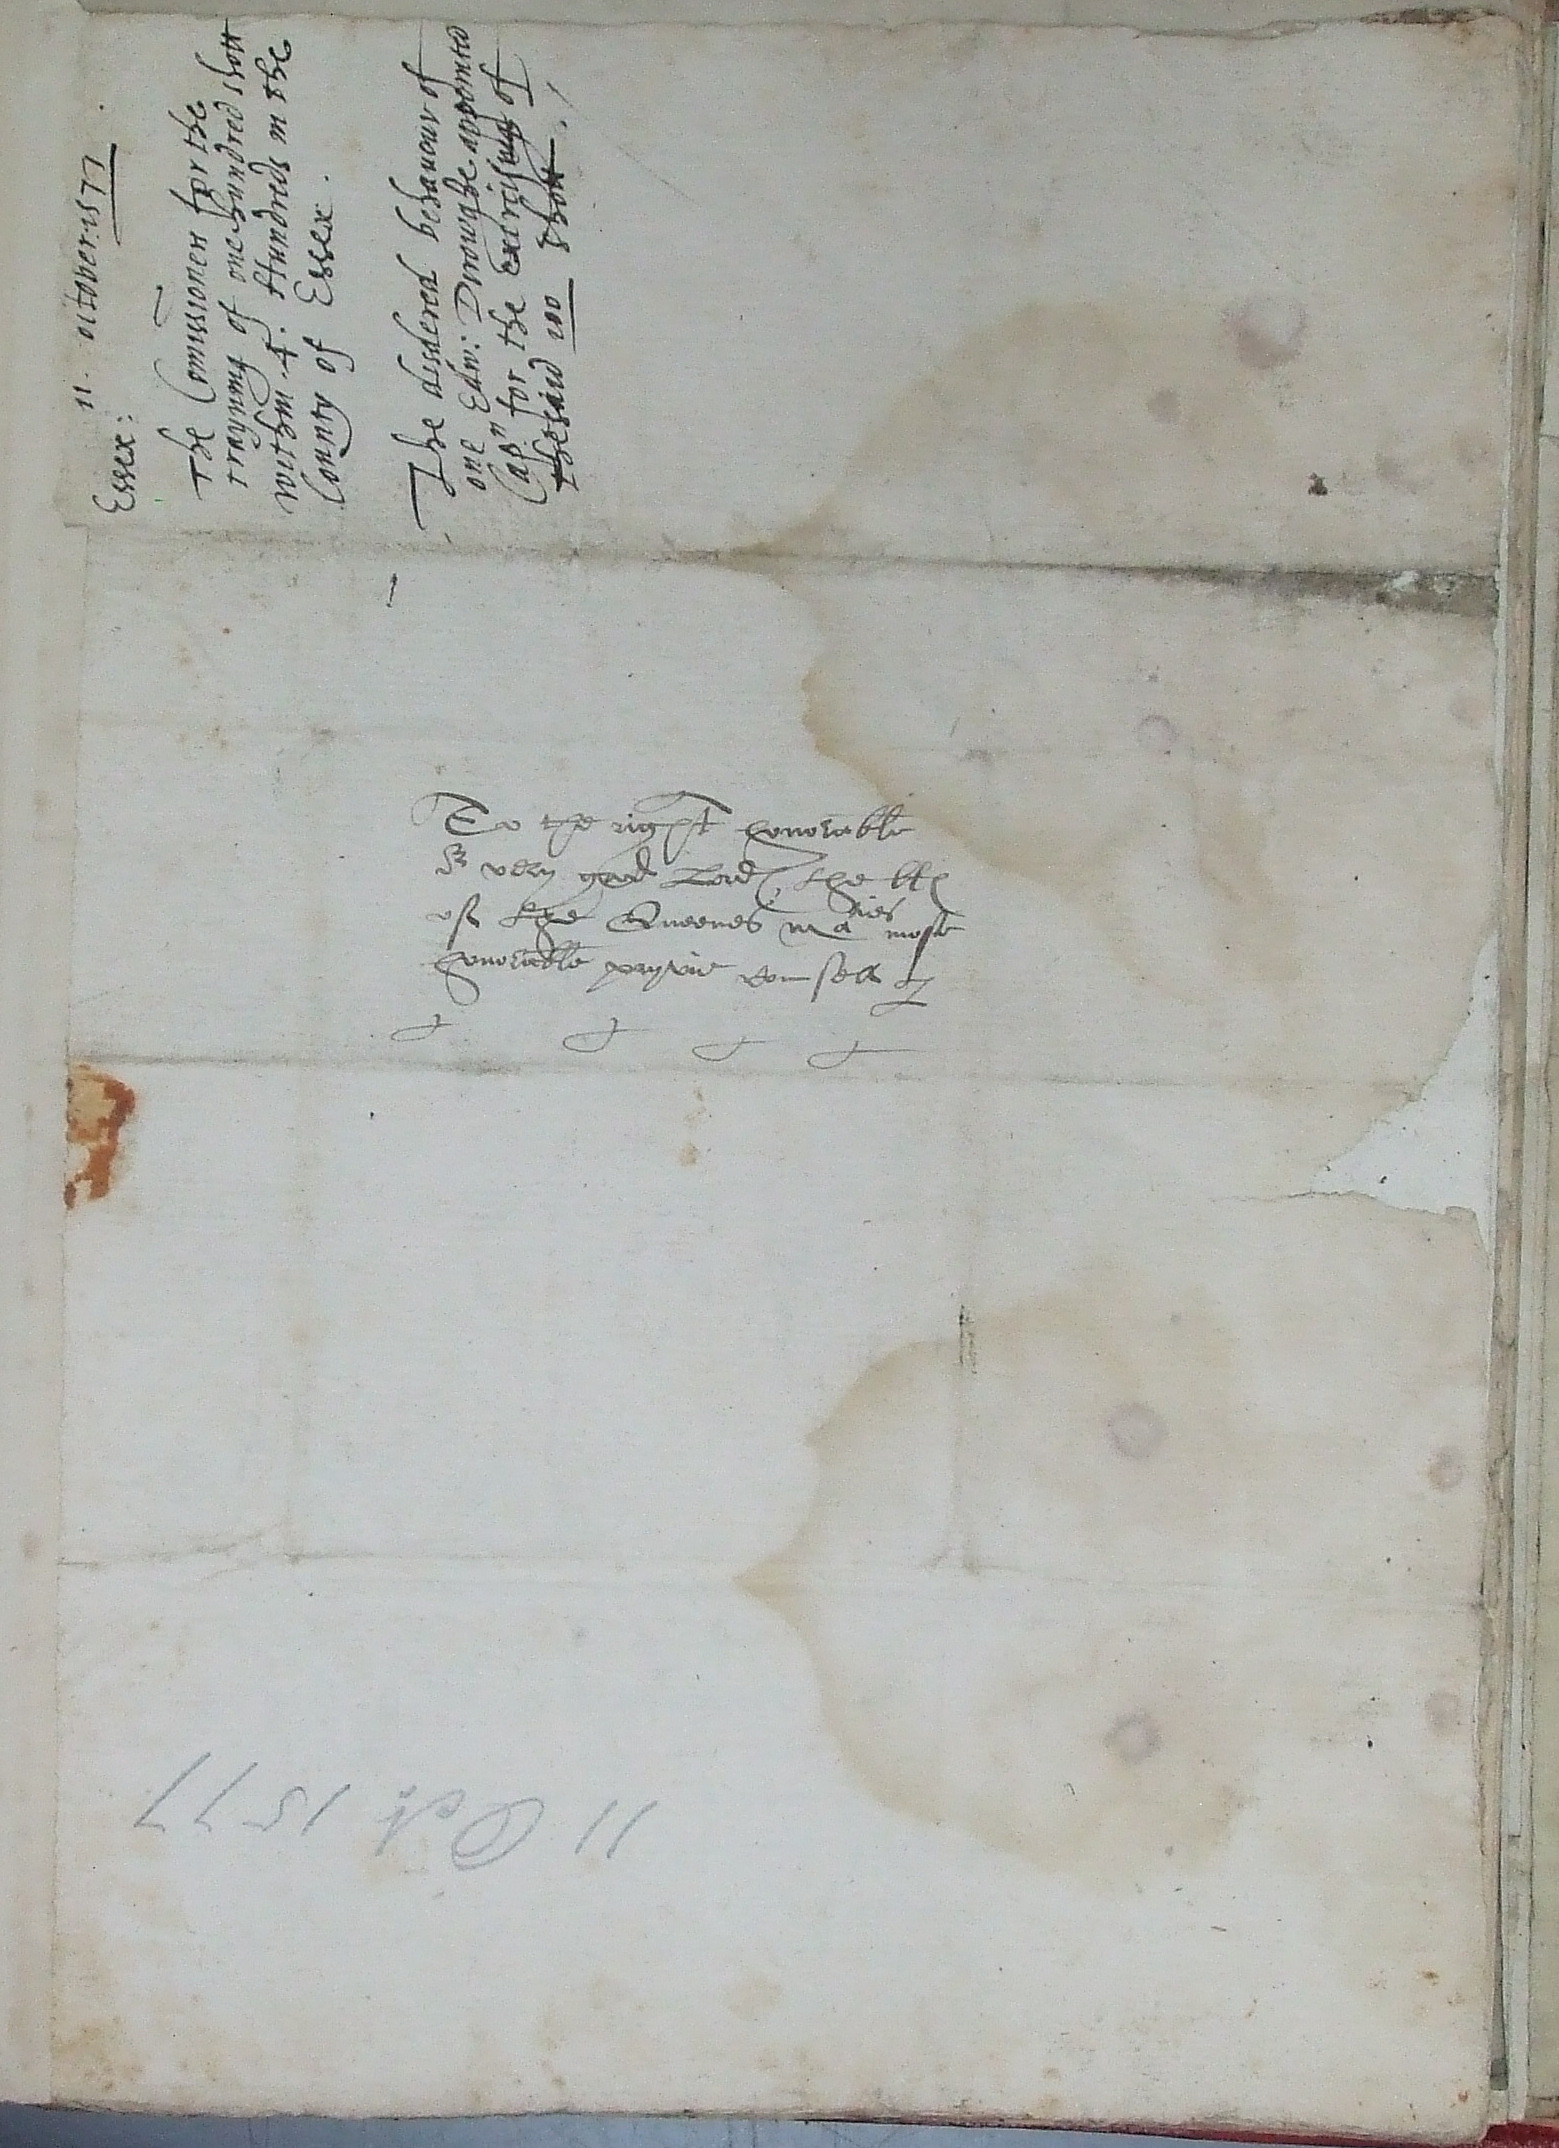 11 . october: 1577 .
Essex:
The Comissioners for the
trayning of one hundred shott
within .4. Hundreds in the
County of Essex .
The disdered behaviour of
one Edw: appointed
Capn for the exercising of
the said 100 shott .
To the right honorable
& very good Lordes the lls
of the Queenes maties moste
honorable pryvie counsell
11 Oct 1577